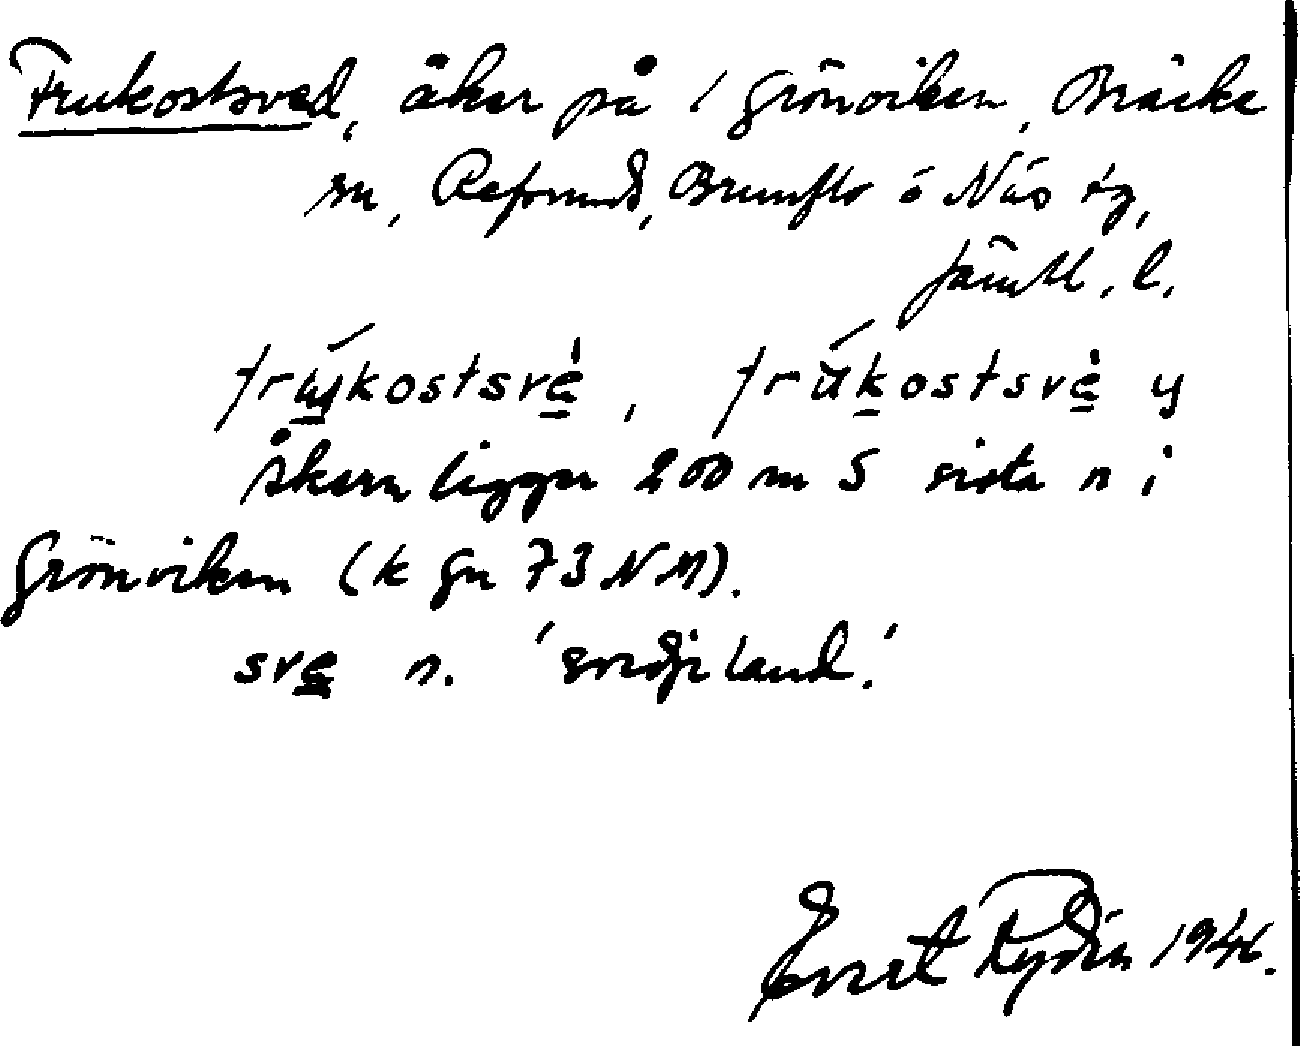 Frukostsved, åker på 1 Grönviken, Bräcke
sn, Refsunds, Brunflo o Näs tg,
Jämtl. l.
frukostsvè, frúkostsvè
Åkern ligger 200 m S sista n i
Grönviken (k gn 73 NM).
sve n. 'svedjeland'.
Ernst Rydén 1946.